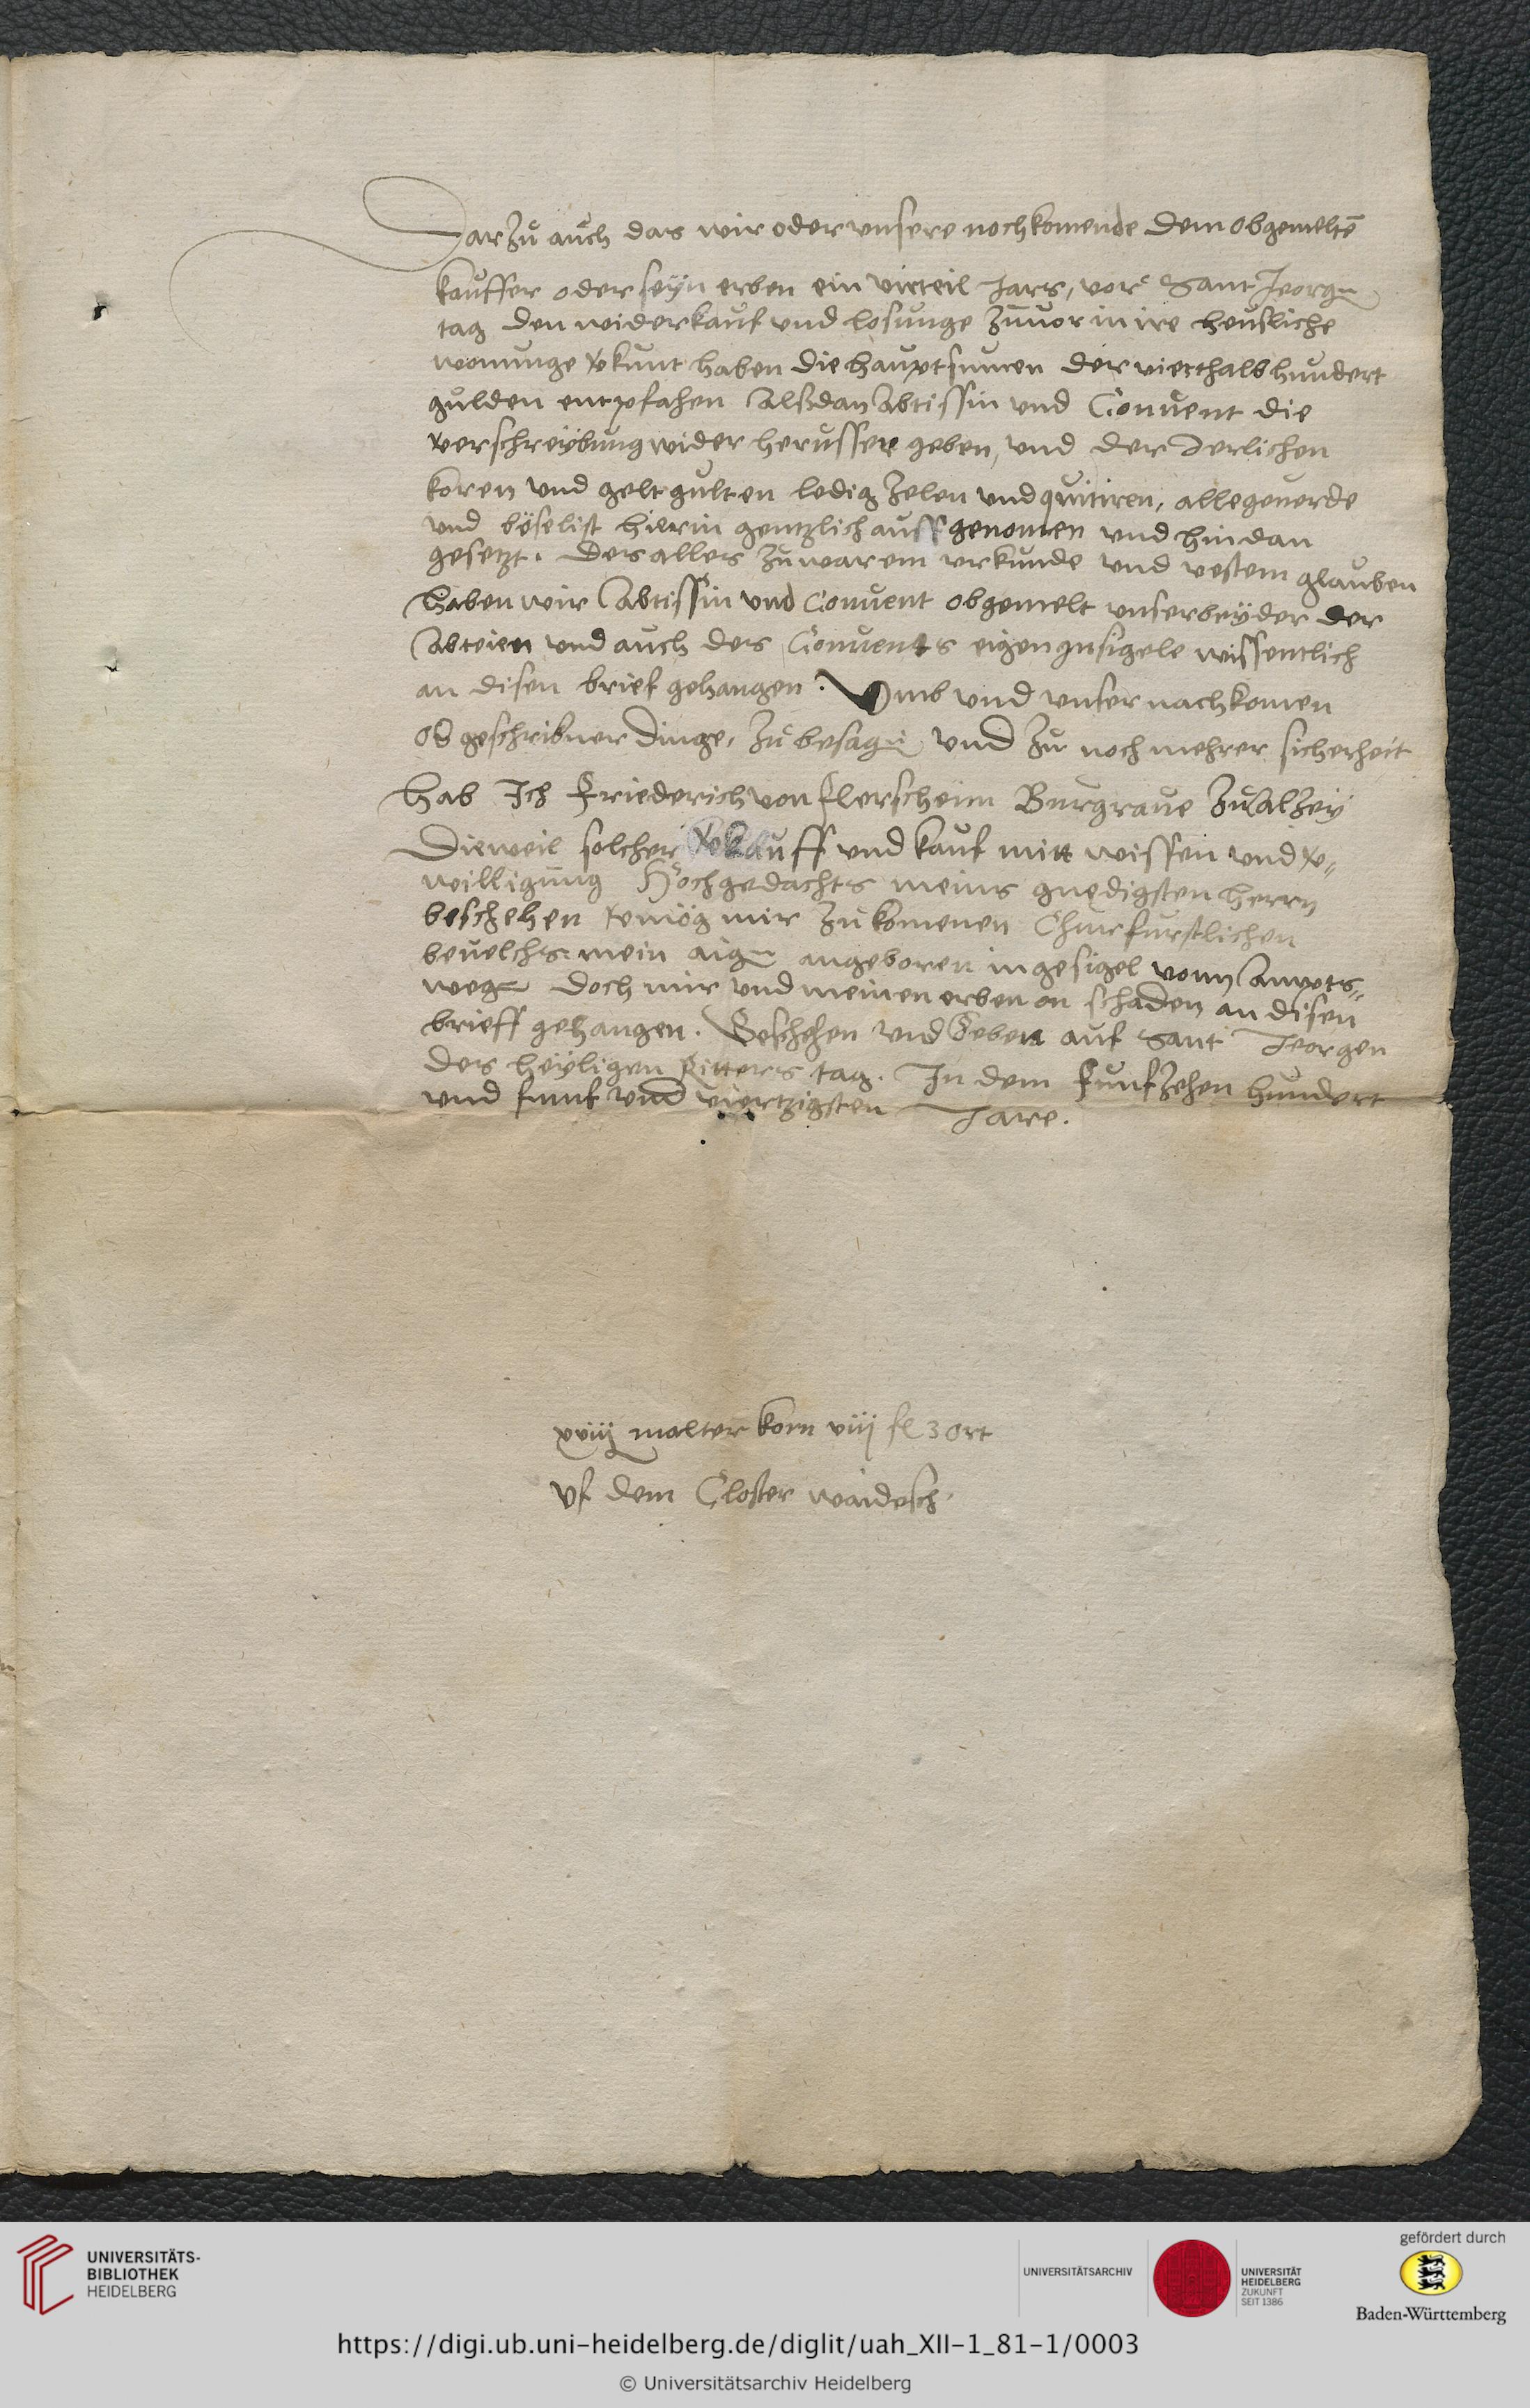 Darzu auch das wir oder unsere nochkomende dem obgemeltē
kauffer oder seyn erben ein virteil Jars, vor Sant Jeorgn
tag den widerkauf und losunge zuuor in ire heusliche
wonunge vkunt haben die hauptsumen der vierthalb hundert
gulden entpfahen Alsdan Abtissin und Conuent die
verschreybung wider herusser geben, und der Jerlichen
koren und gelt gulten ledig zelen und quitiren, alle geuerde
und böselist hierin gentzlich aussgenomen und hindan
gesetzt. Des alles zu warem urkunde und vestem glauben
haben wir Abtissin und Conuent obgemelt unser beyder der
Abteien und auch des Conuents eigen Insigele wissentlich
an disen brief gehangen. Vmb und unser nachkomen
Ob geschribner dinge, zu besagn und zu noch mehrer sicherheit
Hab Ich Friederich von flerscheim Burgraue zu Alzey
Dieweil solcher vkauff und kauf mitt wissen und v„
willigung Hochgedachts meins gnedigsten herrn
beschehen vermög mir zu komenen Churfurstlichen
beuelchs mein aign angeboren ingesigel vonn Ampts„
wegn doch mir und meinen erben on schaden an disen
brieff gehangen. Geschehen und Geben auf Sant Jeorgen
des heyligen Ritters tag. In dem funfzehen hundert
und funf und viertzigsten Jare.
xviij malter korn viij fl 3 ort
Vf dem Closter waidesch
UNIVERSITÄTS-
BIBLIOTHEK
HEIDELBERG
UNIVERSITÄTSARCHIV
UNIVERSITÄT
HEIDELBERG
ZUKUNFT
SEIT 1386
gefördert durch
Baden-Württemberg
https://digi.ub.uni-heidelberg.de/diglit/uah_XII-1_81-1/0003
© Universitätsarchiv Heidelberg